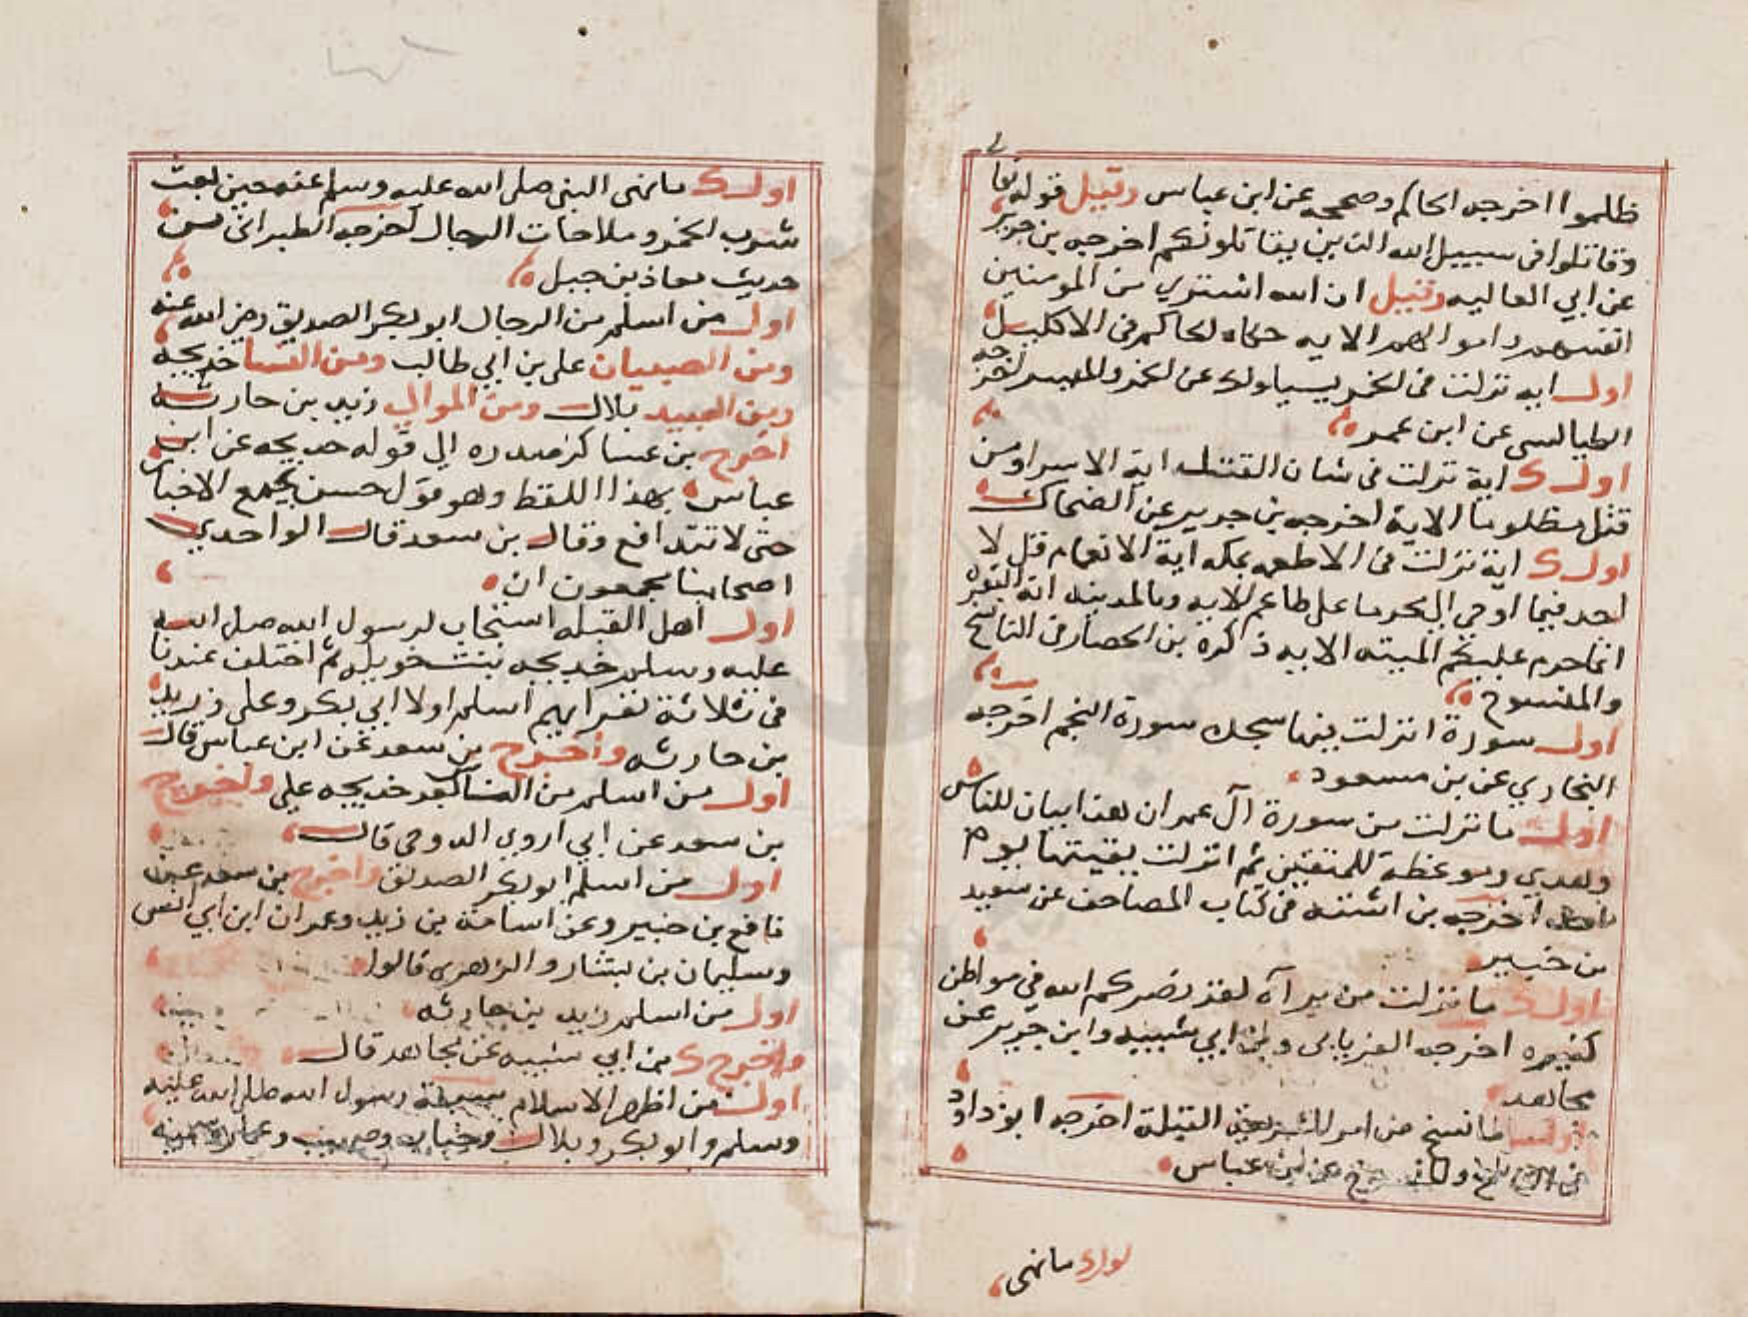 ظلموا اخرجه الحاكم وصححه عن ابن عباس وقيل قوله تعا
وقاتلوا فى سبيل الله الذين يقاتلونكم اخرجه بن جرير
عن ابي العاليه وقيل ان الله اشتري من المومنين
انفسهم واموالهم الايه حكاه الحاكم فى الاكليل
اول ايه نزلت فى الخمر يسيالونك عن الخمر والميسر اخرجه
الطيالسى عن ابن عمر
اول اية نزلت فى شان القتل اية الاسرا ومن
قتل مظلوما الاية اخرجه بن جرير عن الضحاك
اول اية نزلت فى الاطعمه بمكه اية الانعام قل لا
اجد فيما اوحي الي محرما على طاعم الايه وبالمدينه اية البقره
انما حرم عليكم الميته الايه ذكره بن الحصار فى الناسخ
والمنسوخ
اول سورة انزلت فيها سجده سورة النجم اخرجه
البخاري عن بن مسعود
اول ما نزلت من سورة آل عمران هذا بيان للناس
وهدي وموعظة للمتقين ثم انزلت بقيتها يوم
احد اخرجه بن اشته فى كتاب المصاحف عن سعيد
بن جبير
اول ما نزلت من براة لقد نصركم الله في مواطن
كثيره اخرجه الفريابى وابن ابي شيبه وابن جرير عن
مجاهد
اول ما نسخ من امر الشريعة القبلة اخرجه ابو داود
عن ابن عباس
اول ما نهى
اول ما نهى النبى صلى الله عليه وسلم عنه حين بعث
شرب الخمر وملاحات الرجال اخرجه الطبرانى من
حديث معاذ بن جبل
اول من اسلم من الرجال ابو بكر الصديق رضى الله عنه
ومن الصبيان على بن ابي طالب ومن النسا خديجه
ومن العبيد بلال ومن الموالي زيد بن حارثه
اخرج بن عساكر صدره الى قوله خديجه عن ابن
عباس بهذا اللفظ وهو قول حسن يجمع الاخبار
حتى لا تتدافع وقال بن سعد قال الواحدي
اصحابنا مجمعون ان
اول اهل القبله استجاب لرسول الله صلى الله
عليه وسلم خديجه بنت خويلد ثم اختلف عندنا
فى ثلاثة نفر ايهم اسلم اولا ابي بكر وعلى وزيد
بن حارثه واخرج بن سعد عن ابن عباس قال
اول من اسلم من الناس بعد خديجه على واخرج
بن سعد عن ابي اروى الدوسى قال
اول من اسلم ابو بكر الصديق واخرج بن سعد عن
نافع بن جبير وعن اسامة بن زيد وعمران ابن ابي انس
وسليمان بن يشار والزهري قالوا
اول من اسلم زيد بن حارثه
واخرج بن ابي شيبه عن مجاهد قال
اول من اظهر الاسلام سبعة رسول الله صلى الله عليه
وسلم وابو بكر وبلال وخباب وصهيب وعمار وسميه